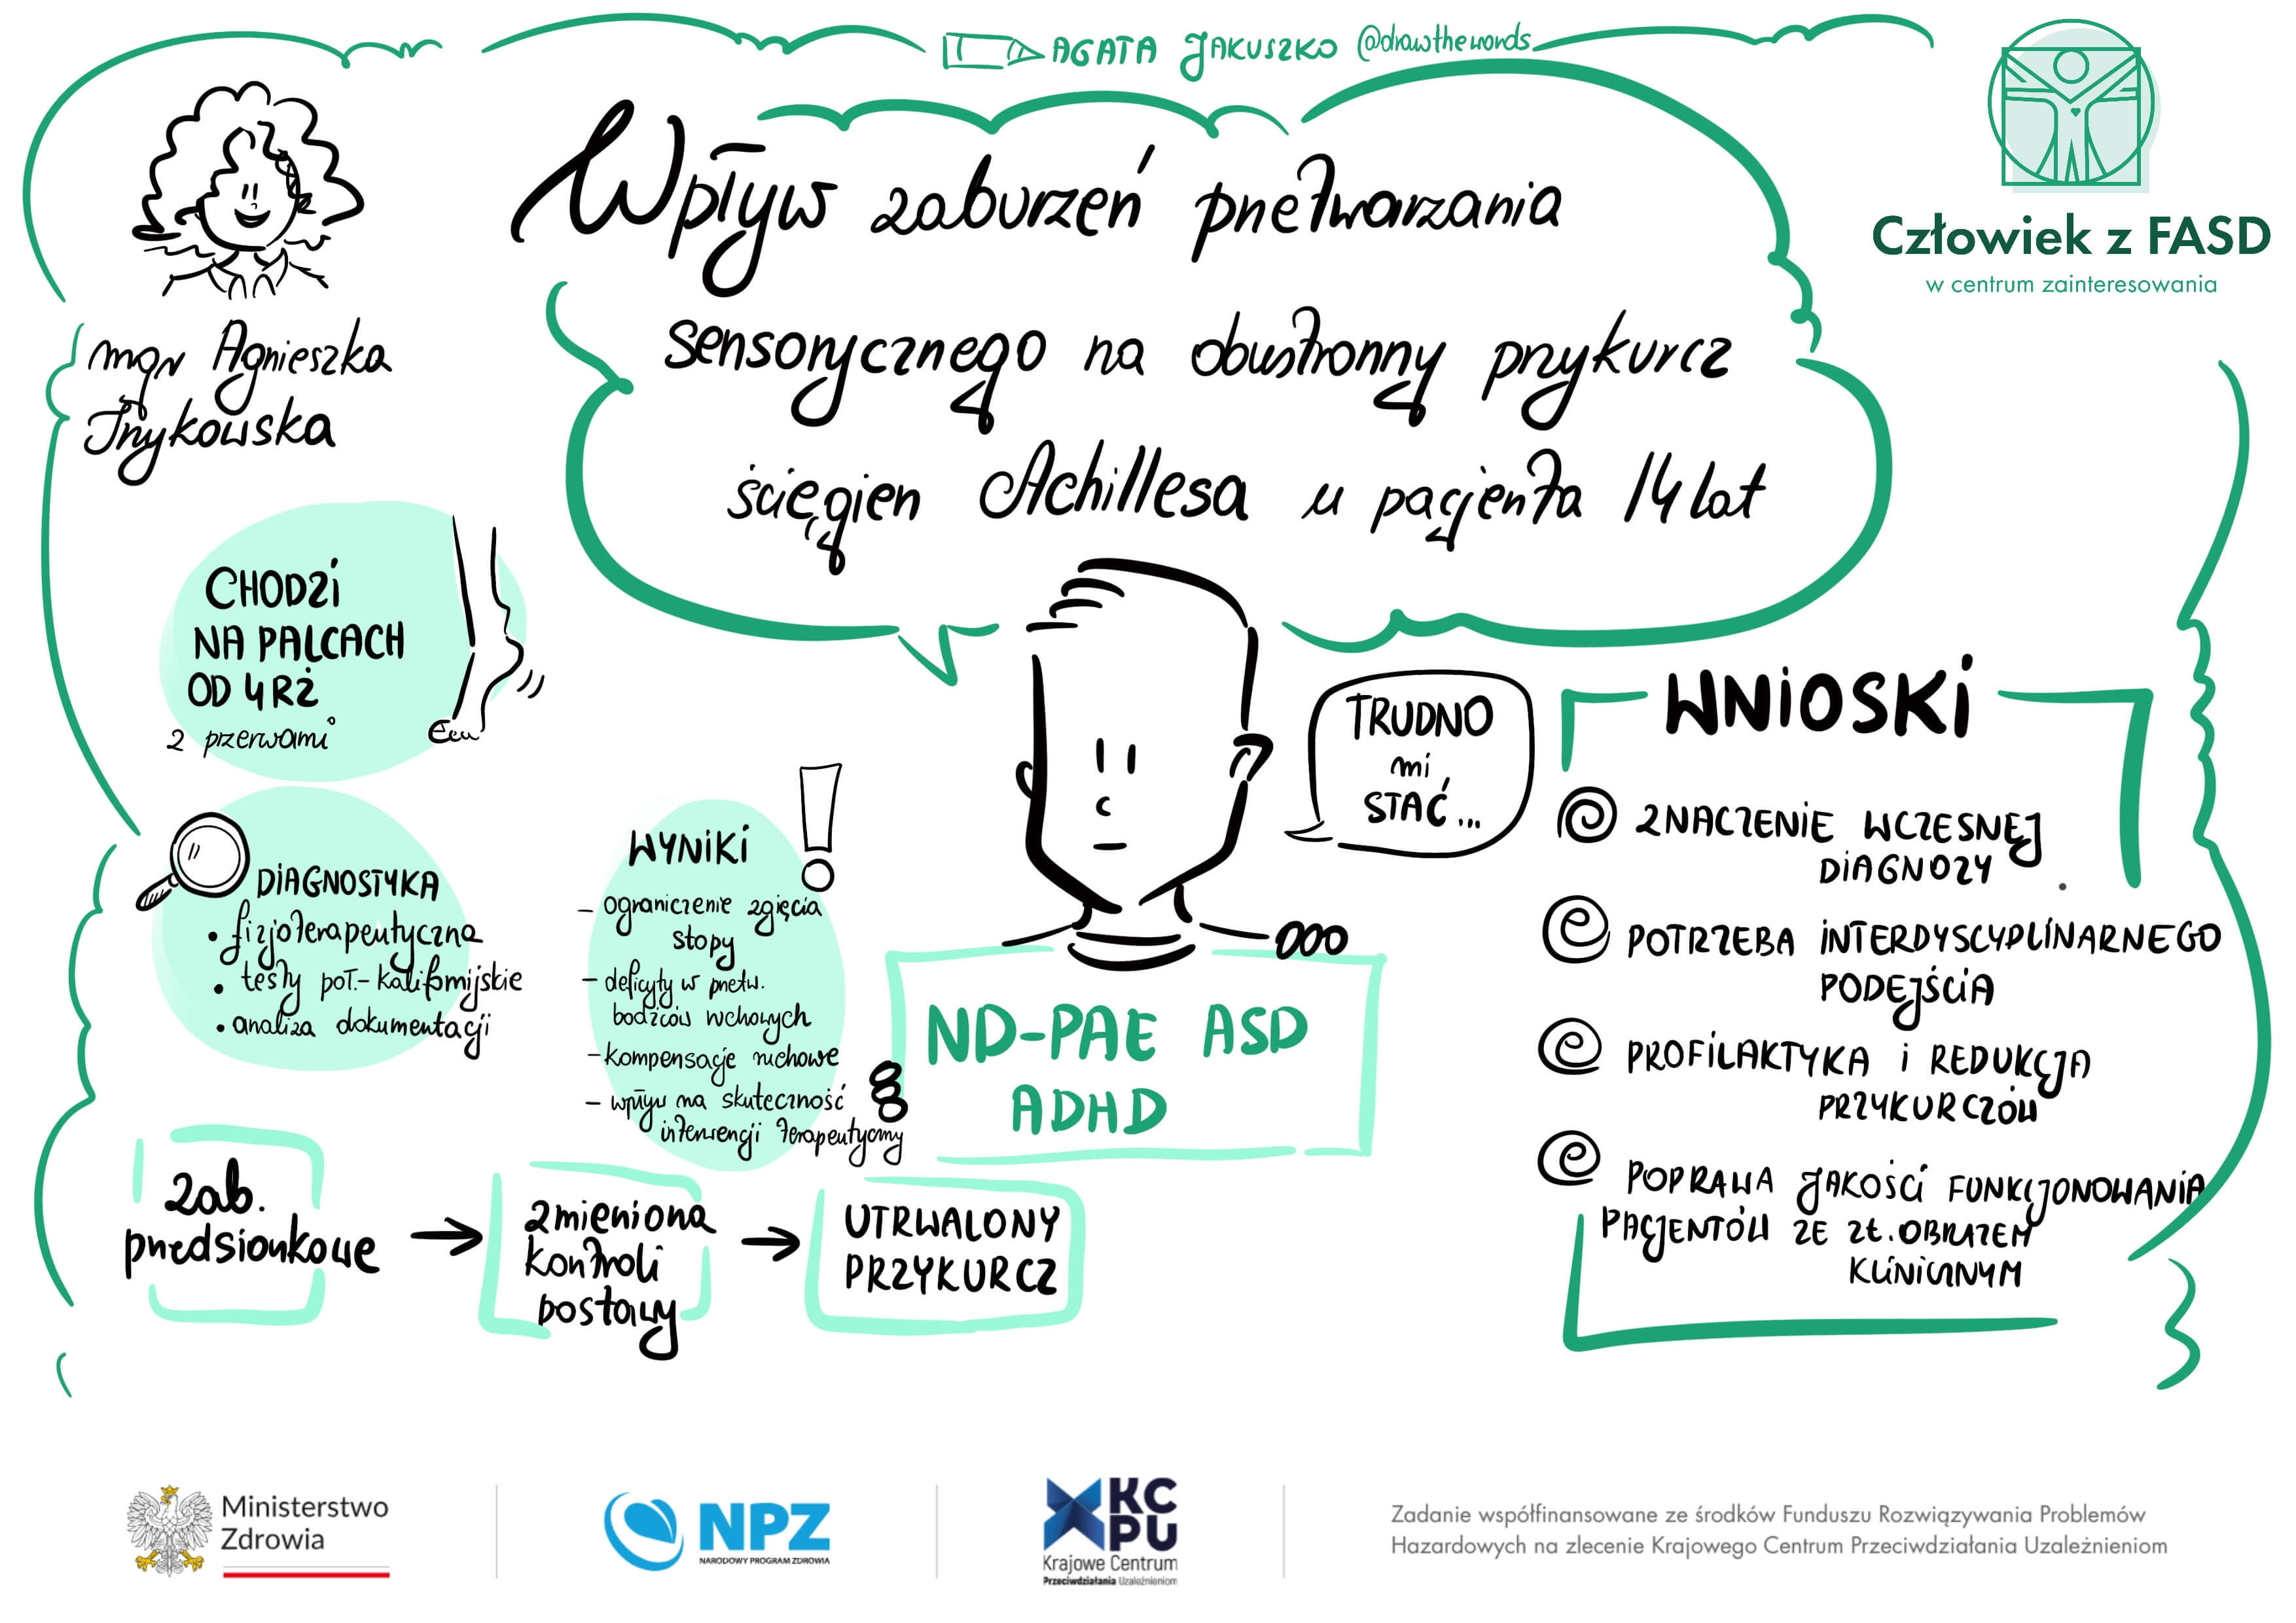 AGATA JAKUSZKO @drawthewords
Człowiek z FASD
w centrum zainteresowania
Wpływ zaburzeń przetwarzania
sensorycznego na obustronny przykurcz
ścięgien Achillesa u pacjenta 14 lat
mgr Agnieszka
Trykowska
CHODZI
NA PALCACH
OD 4 RŻ
z przerwami
DIAGNOSTYKA
• fizjoterapeutyczna
• testy poł.-kalifornijskie
• analiza dokumentacji
WYNIKI
– ograniczenie zgięcia
stopy
– deficyty w przetw.
bodźców ruchowych
– kompensacje ruchowe
– wpływ na skuteczność
interwencji terapeutycznej
TRUDNO
mi
STAĆ...
ND-PAE ASD
ADHD
zab.
przedsionkowe
→
zmieniona
kontroli
postawy
→
UTRWALONY
PRZYKURCZ
WNIOSKI
ZNACZENIE WCZESNEJ
DIAGNOZY
POTRZEBA INTERDYSCYPLINARNEGO
PODEJŚCIA
PROFILAKTYKA i REDUKCJA
PRZYKURCZÓW
POPRAWA JAKOŚCI FUNKCJONOWANIA
PACJENTÓW ZE ZŁ. OBRAZEM
KLINICZNYM
Ministerstwo
Zdrowia
NPZ
NARODOWY PROGRAM ZDROWIA
KC
PU
Krajowe Centrum
Przeciwdziałania Uzależnieniom
Zadanie współfinansowane ze środków Funduszu Rozwiązywania Problemów
Hazardowych na zlecenie Krajowego Centrum Przeciwdziałania Uzależnieniom